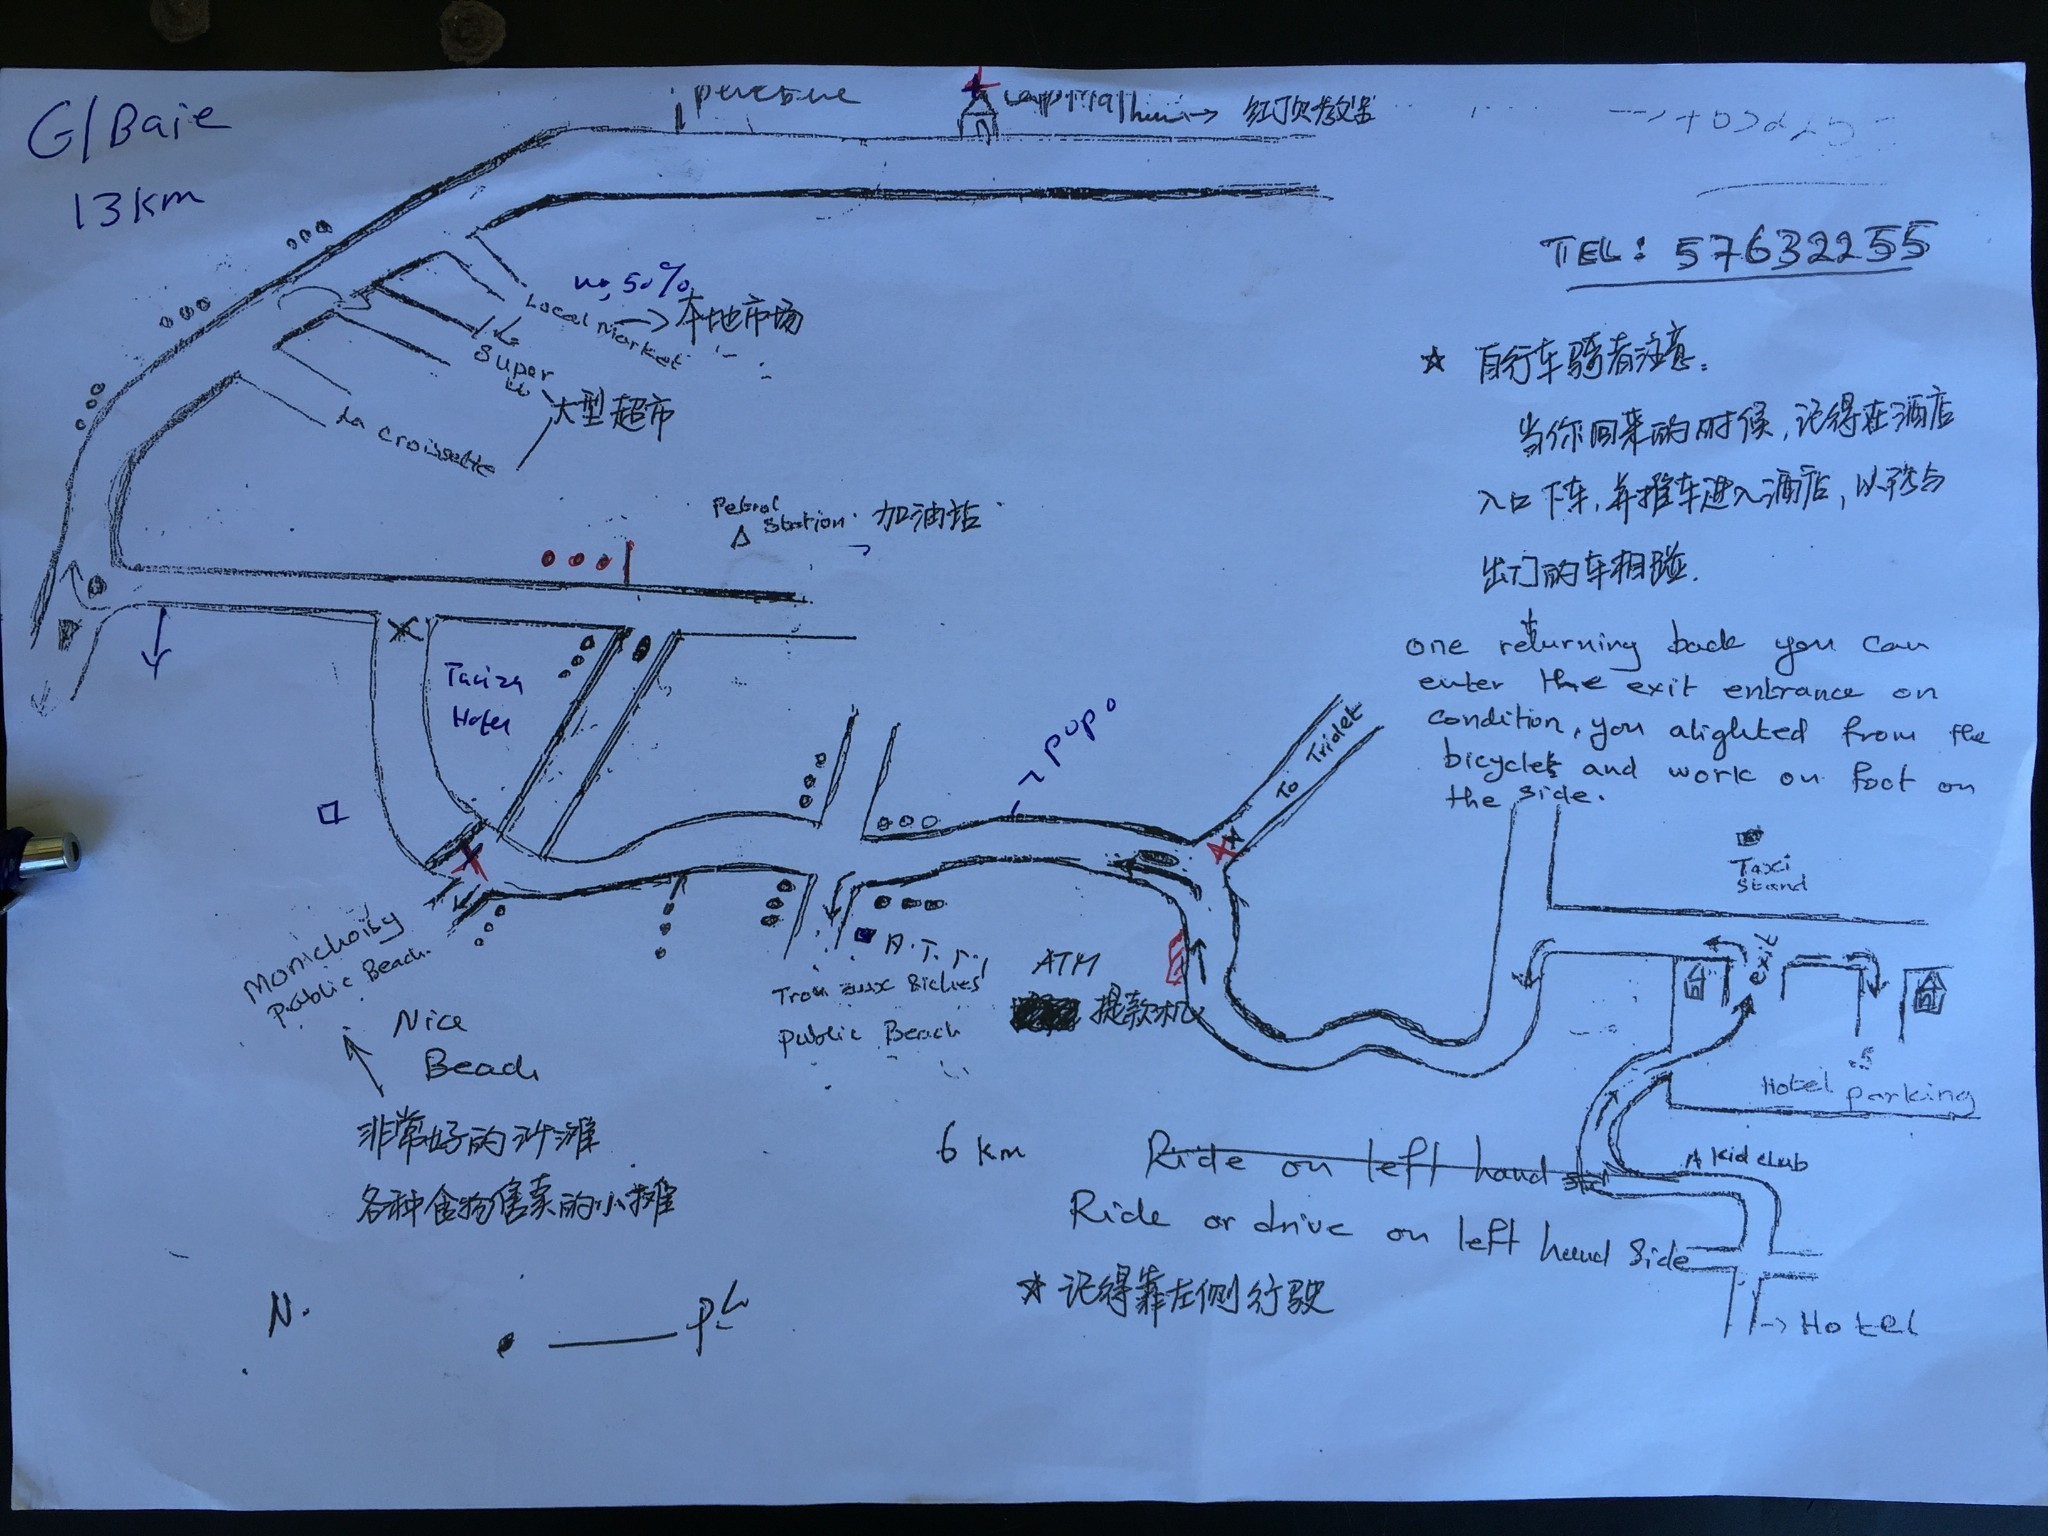 G/Baie
13km
红顶教堂
TEL: 57632255
50%
Local Market
本地市场
Super
大型超市
La Croisette
Petrol
Station
加油站
★ 自行车骑者注意:
当你回来的时候, 记得在酒店
入口下车, 并推车进入酒店, 以
出门的车相碰.
one returning back you can
enter the exit entrance on
condition, you alighted from the
bicycles and work on foot on
the side.
Hotel
pupo
To Triolet
Taxi
Stand
exit
Monichoisy
Public Beach.
Nice
Beach
非常好的沙滩
各种食物售卖的小摊
Public Beach
ATM
提款机
Hotel parking
Kid club
6 km
Ride on left hand
Ride or drive on left hand side
★ 记得靠左侧行驶
Hotel
N.